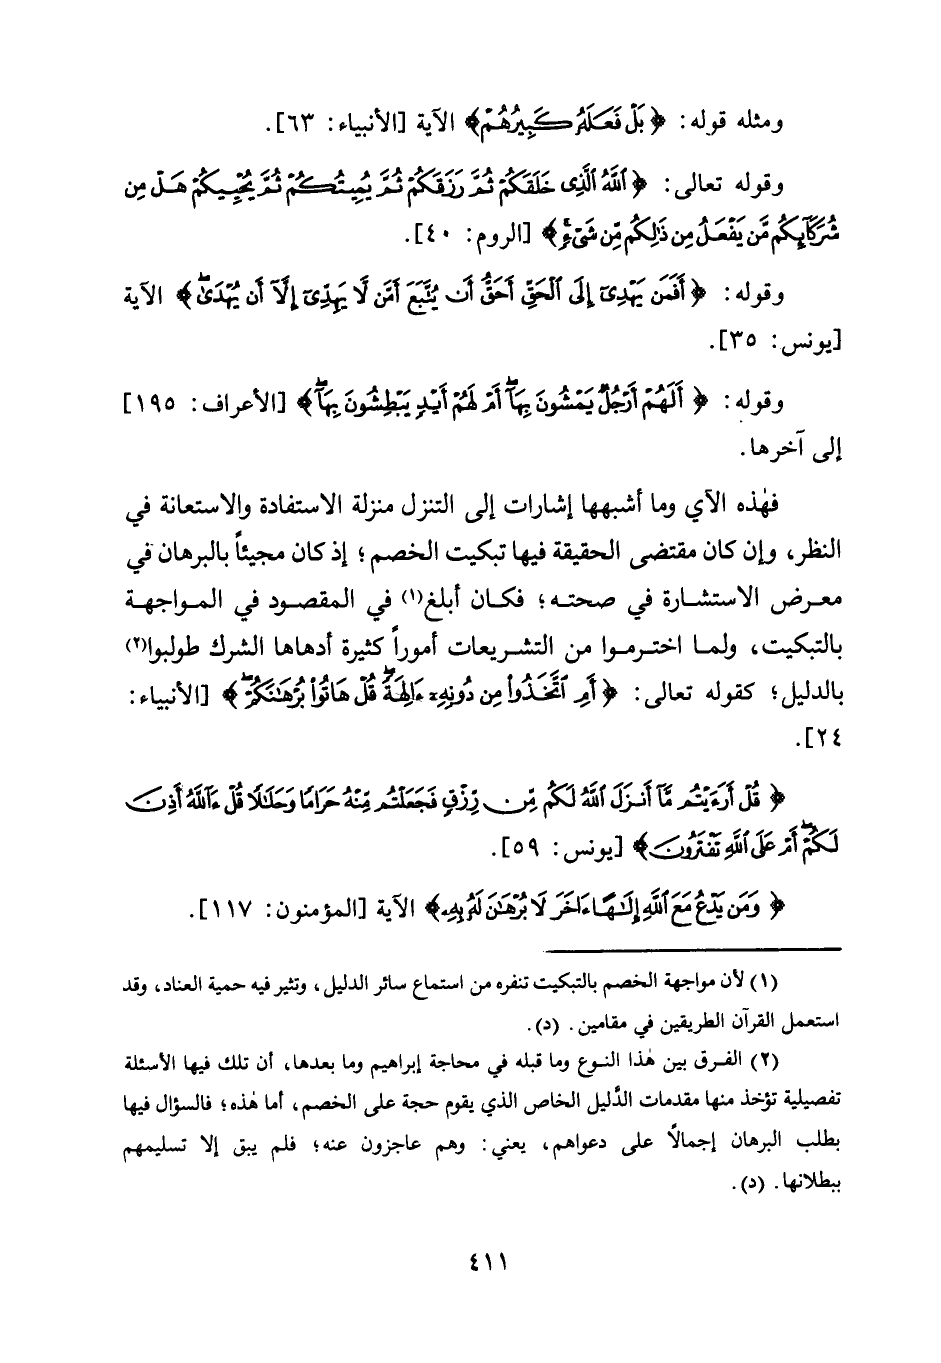 ومثله قوله: ﴿بَلْ فَعَلَهُۥ كَبِيرُهُمْ﴾ الآية [الأنبياء: ٦٣].
وقوله تعالى: ﴿ٱللَّهُ ٱلَّذِى خَلَقَكُمْ ثُمَّ رَزَقَكُمْ ثُمَّ يُمِيتُكُمْ ثُمَّ يُحْيِيكُمْ هَلْ مِن
شُرَكَآئِكُم مَّن يَفْعَلُ مِن ذَٰلِكُم مِّن شَىْءٍ﴾ [الروم: ٤٠].
وقوله: ﴿أَفَمَن يَهْدِىٓ إِلَى ٱلْحَقِّ أَحَقُّ أَن يُتَّبَعَ أَمَّن لَّا يَهِدِّىٓ إِلَّآ أَن يُهْدَىٰ﴾ الآية
[يونس: ٣٥].
وقوله: ﴿أَلَهُمْ أَرْجُلٌ يَمْشُونَ بِهَآ أَمْ لَهُمْ أَيْدٍ يَبْطِشُونَ بِهَآ﴾ [الأعراف: ١٩٥]
إلى آخرها.
فهٰذه الآي وما أشبهها إشارات إلى التنزل منزلة الاستفادة والاستعانة في
النظر، وإن كان مقتضى الحقيقة فيها تبكيت الخصم؛ إذ كان مجيئاً بالبرهان في
معرض الاستشارة في صحته؛ فكان أبلغ(١) في المقصود في المواجهة
بالتبكيت، ولما اخترموا من التشريعات أموراً كثيرة أدهاها الشرك طولبوا(٢)
بالدليل؛ كقوله تعالى: ﴿أَمِ ٱتَّخَذُوا۟ مِن دُونِهِۦٓ ءَالِهَةً قُلْ هَاتُوا۟ بُرْهَٰنَكُمْ﴾ [الأنبياء:
٢٤].
﴿قُلْ أَرَءَيْتُم مَّآ أَنزَلَ ٱللَّهُ لَكُم مِّن رِّزْقٍ فَجَعَلْتُم مِّنْهُ حَرَامًا وَحَلَٰلًا قُلْ ءَآللَّهُ أَذِنَ
لَكُمْ أَمْ عَلَى ٱللَّهِ تَفْتَرُونَ﴾ [يونس: ٥٩].
﴿وَمَن يَدْعُ مَعَ ٱللَّهِ إِلَٰهًا ءَاخَرَ لَا بُرْهَٰنَ لَهُۥ بِهِۦ﴾ الآية [المؤمنون: ١١٧].
(١) لأن مواجهة الخصم بالتبكيت تنفره من استماع سائر الدليل، وتثير فيه حمية العناد، وقد
استعمل القرآن الطريقين في مقامين. (د).
(٢) الفرق بين هٰذا النوع وما قبله في محاجة إبراهيم وما بعدها، أن تلك فيها الأسئلة
تفصيلية تؤخذ منها مقدمات الدَّليل الخاص الذي يقوم حجة على الخصم، أما هٰذه؛ فالسؤال فيها
بطلب البرهان إجمالاً على دعواهم، يعني: وهم عاجزون عنه؛ فلم يبق إلا تسليمهم
ببطلانها. (د).
٤١١